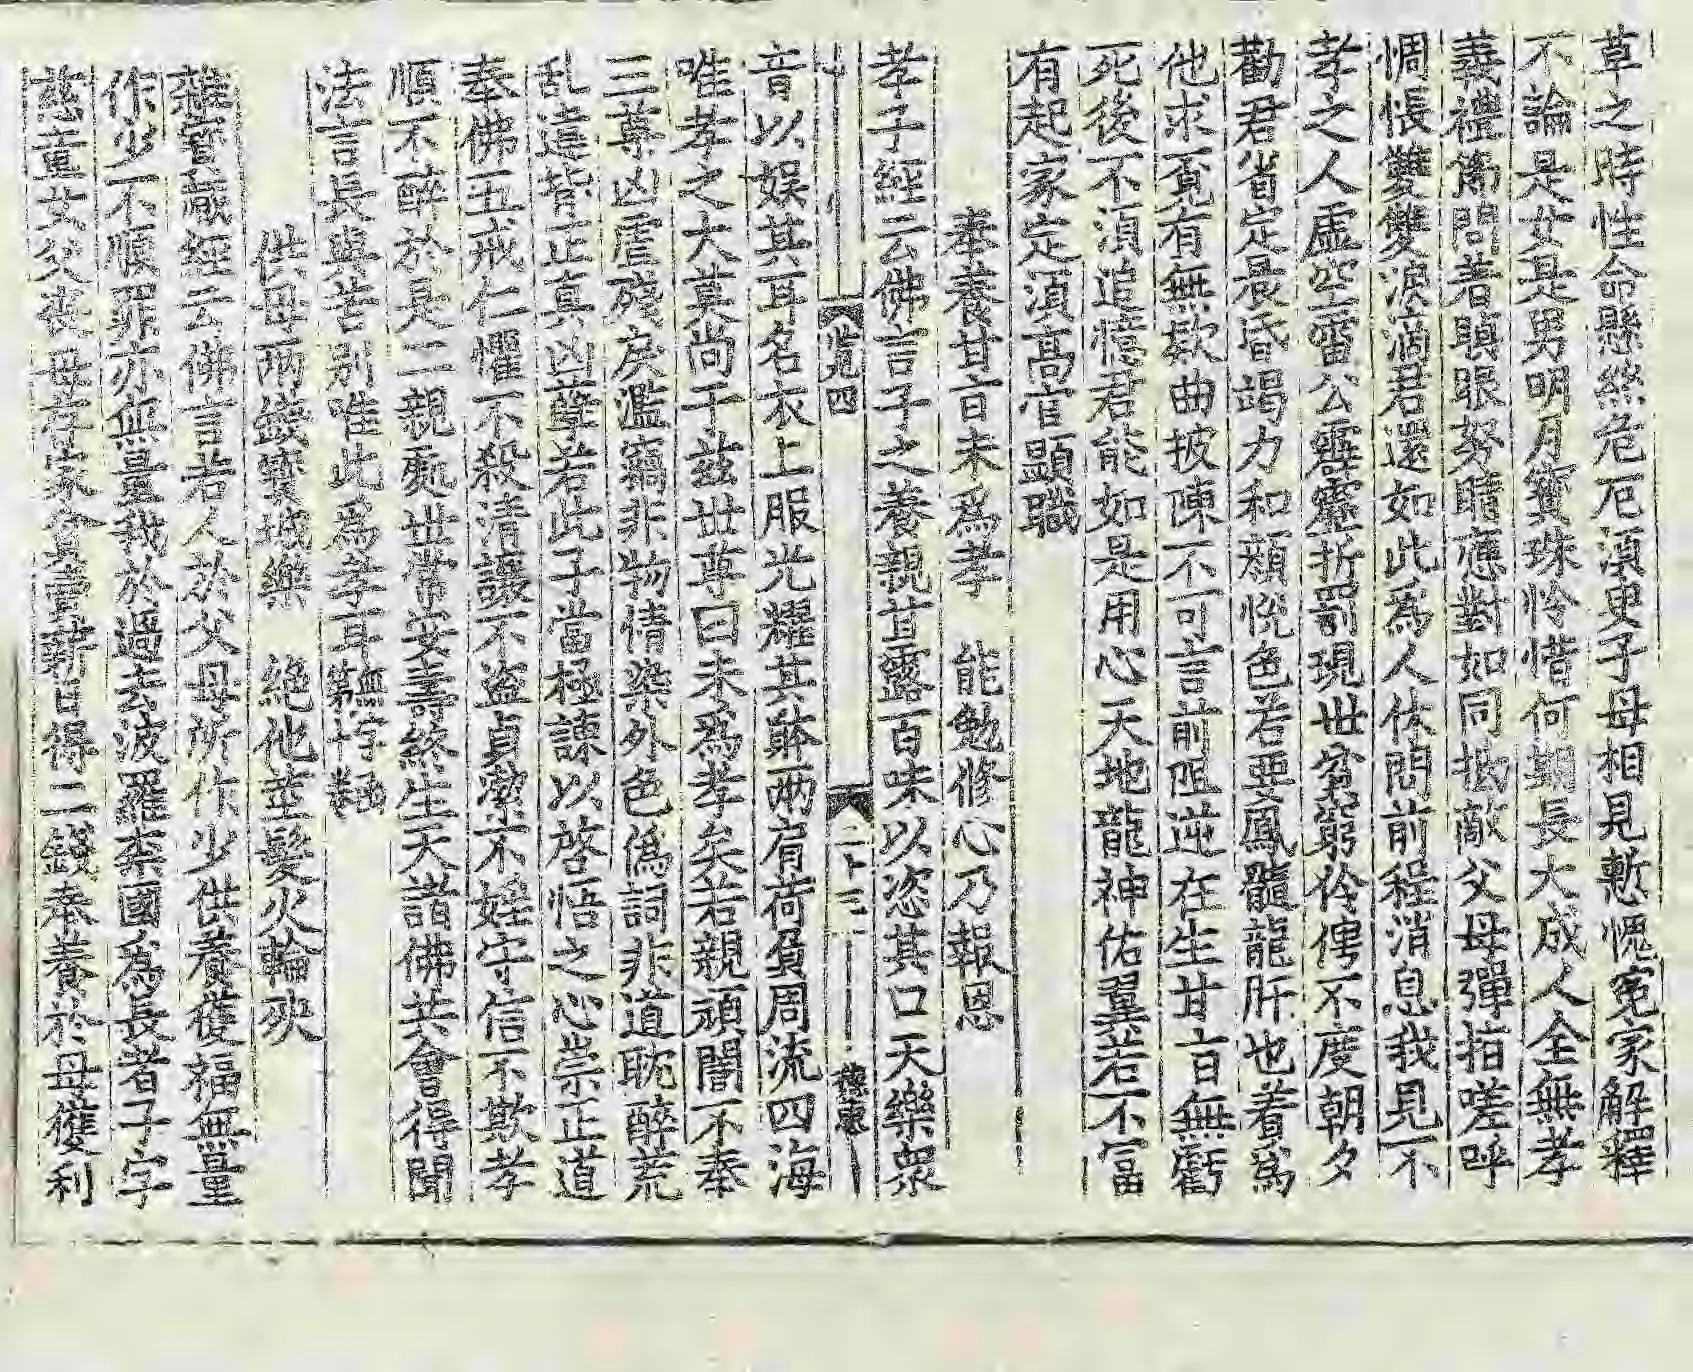 草之時性命懸絲危厄湏臾子母相見慙愧寃家解釋
不論是女是男明月寶珠怜惜何期長大成人全無孝
義禮篤問着瞋眼努睛應對如同抵敵父母彈指嗟呼
惆悵雙雙淚滴君還如此為人休問前程消息我見不
孝之人虛空雷公霹靂折罰現世貧窮伶俜不度朝夕
勸君省定晨昏竭力和顏恱色若要鳳髓龍肝也着為
他求覔有無欵曲披陳不可言前阻逆在生甘旨無虧
死後不湏追憶君能如是用心天地龍神佑翼若不富
有起家定湏髙官顯職
奉養甘旨未為孝　能勉修心乃報恩
孝子經云佛言子之養親甘露百味以恣其口天樂衆
覽四　二十三
音以娱其耳名衣上服光耀其躰两肩荷負周流四海
唯孝之大莫尚于兹世尊曰未為孝矣若親頑闇不奉
三尊凶虐殘戾濫竊非物倩染外色偽詞非道躭醉荒
乱違背正真凶孽若此子當極諌以啓悟之心崇正道
奉佛五戒仁懼不殺清讓不盗貞潔不婬守信不欺孝
順不醉於是二親處世常安壽終生天諸佛共㑹得聞
法言長與苦别唯此為孝耳無字号
供母两錢寶城樂　絶他莖髮火輪殃
雜寶蔵經云佛言若人於父母所作少供養獲福無量
作少不順罪亦無量我於過去波羅柰國為長者子字
慈童女父喪母存家貧賣薪日得二錢奉養於母獲利